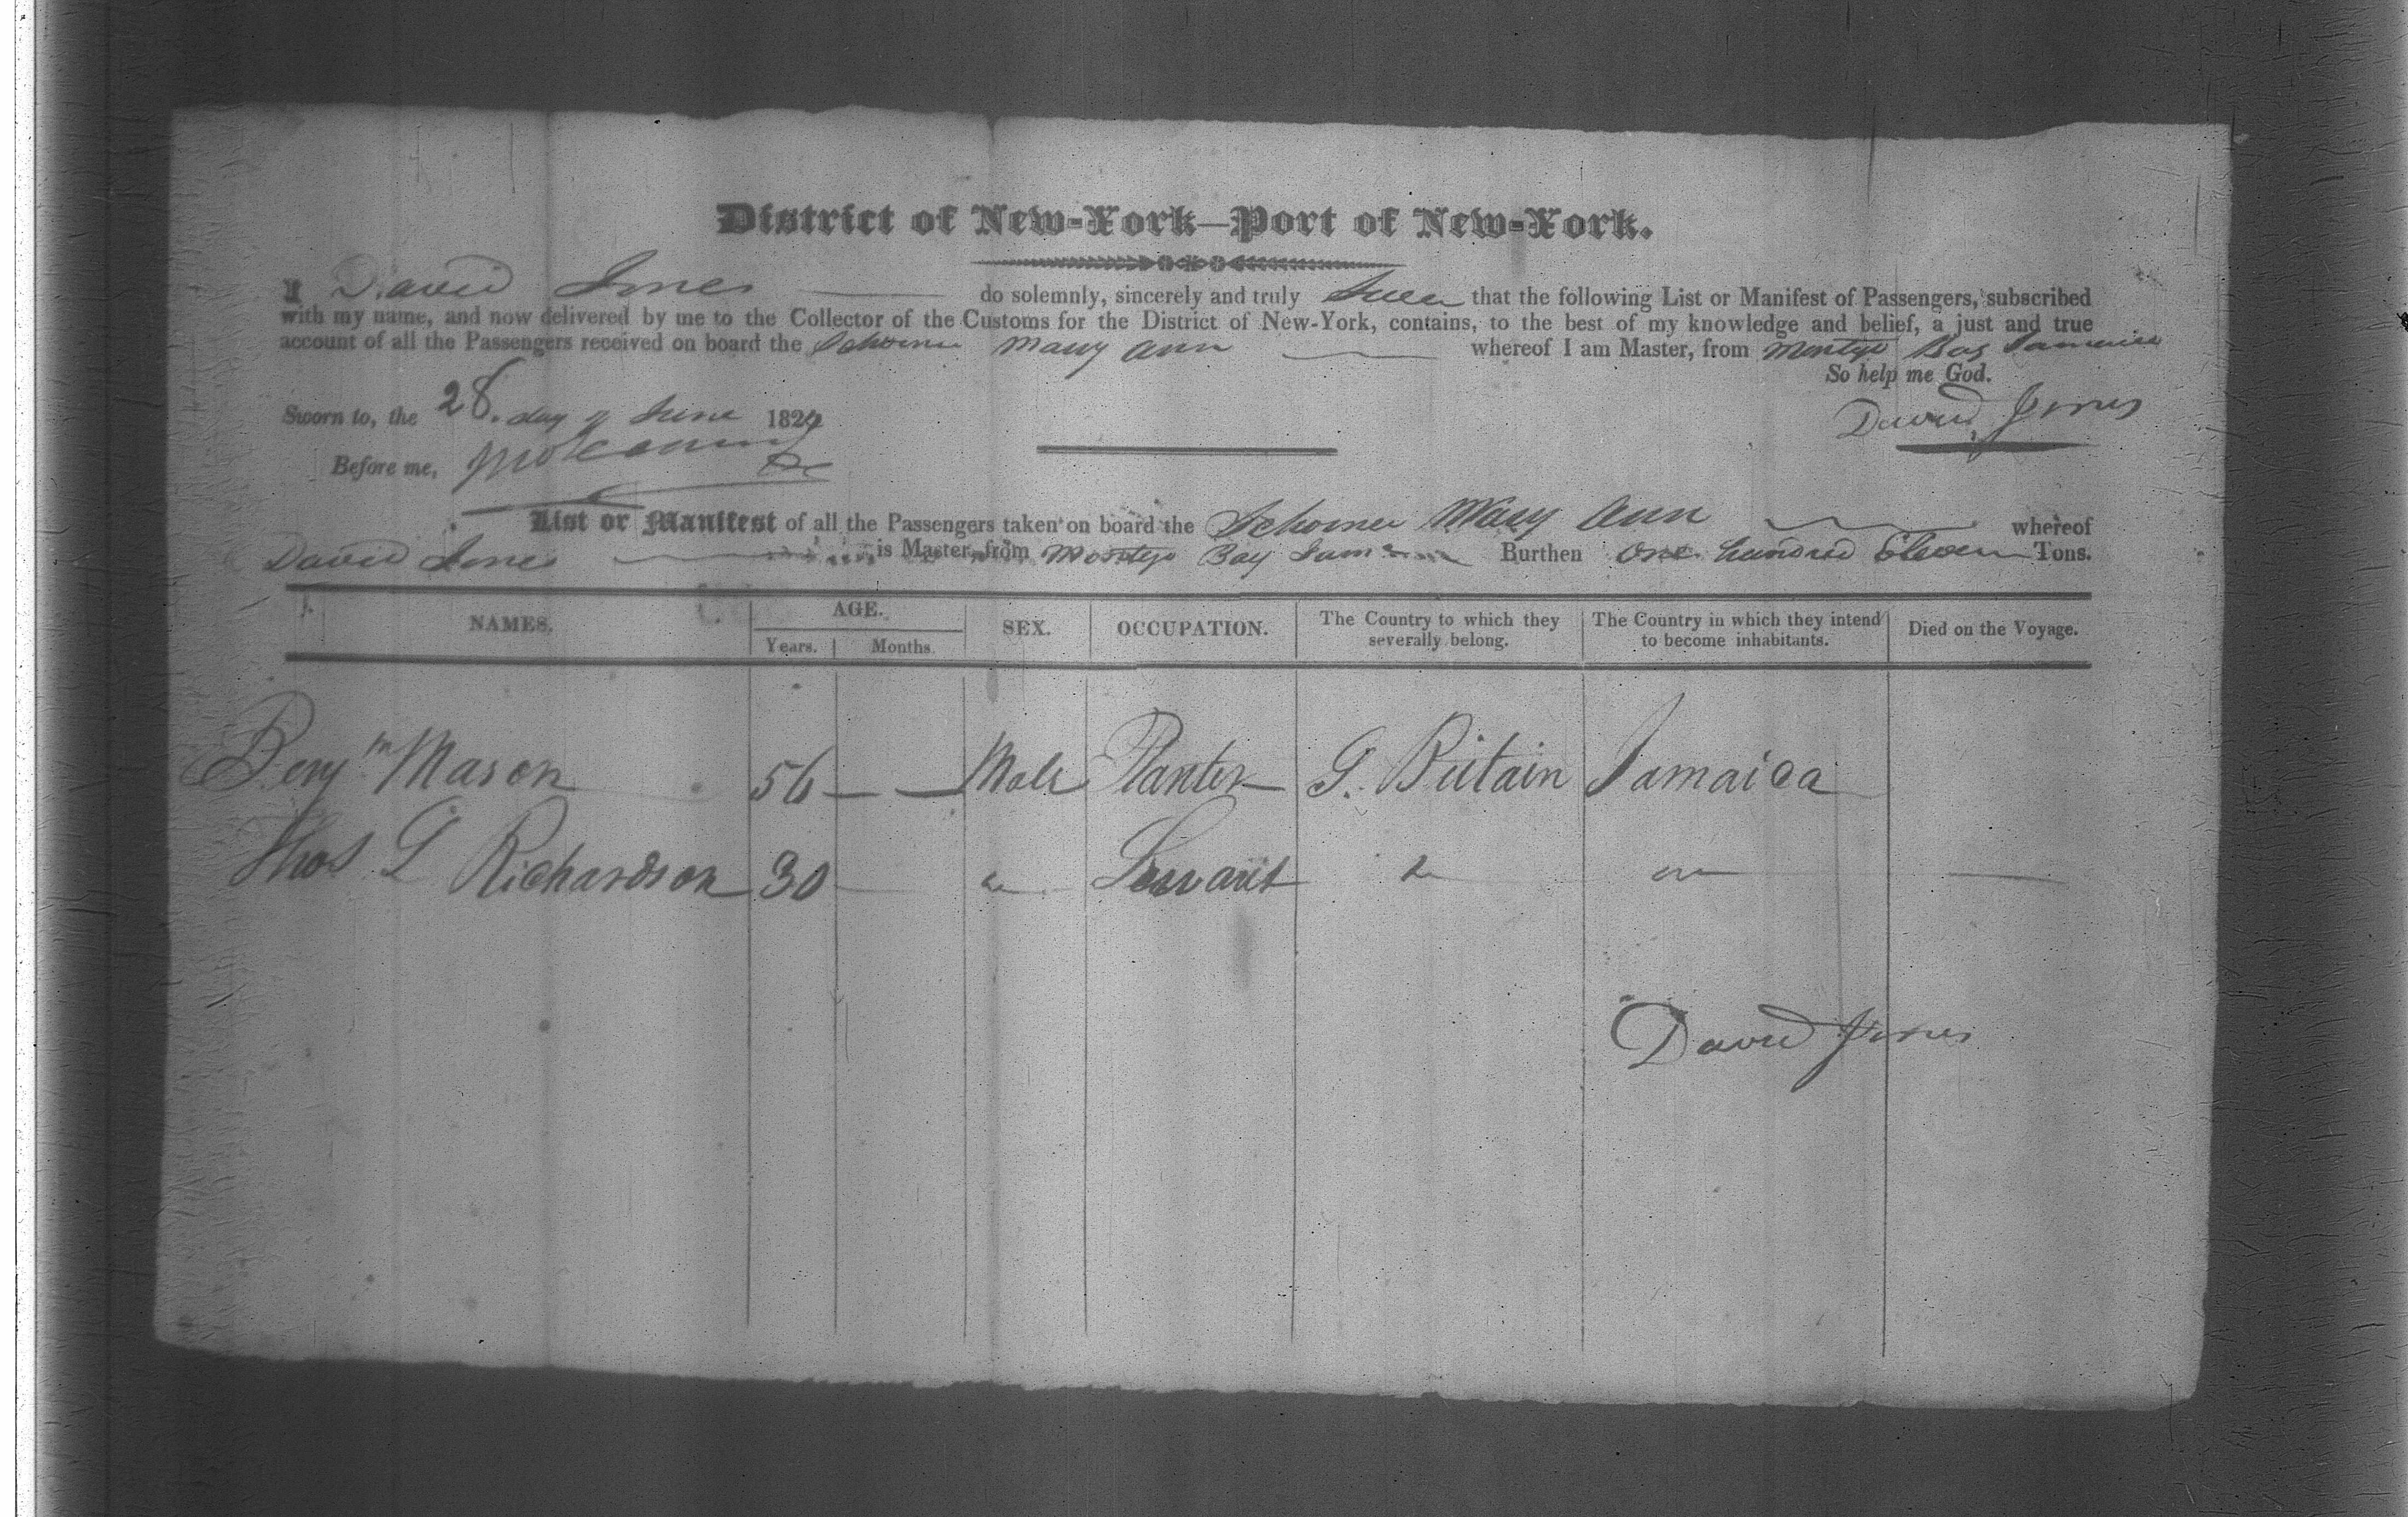 District of New-York—Port of New-York.
I David Jones do solemnly, sincerely and truly Swear that the following List or Manifest of Passengers, subscribed
with my name, and now delivered by me to the Collector of the Customs for the District of New-York, contains, to the best of my knowledge and belief, a just and true
account of all the Passengers received on board the Schooner Mary Ann whereof I am Master, from Montego Bay Jamaica
So help me God.
Sworn to, the 28. day of June 182
David Jones
Before me,
List or Manifest of all the Passengers taken on board the Schooner Mary Ann whereof
David Jones is Master, from Montego Bay Burthen One hundred Eleven Tons.
NAMES. AGE. SEX. OCCUPATION. The Country to which they severally belong. The Country in which they intend to become inhabitants. Died on the Voyage.
Years. Months.
Benjm Mason 56 — — Male Planter G. Britain Jamaica
Thos G Richardson 30 — Servant —
David Jones